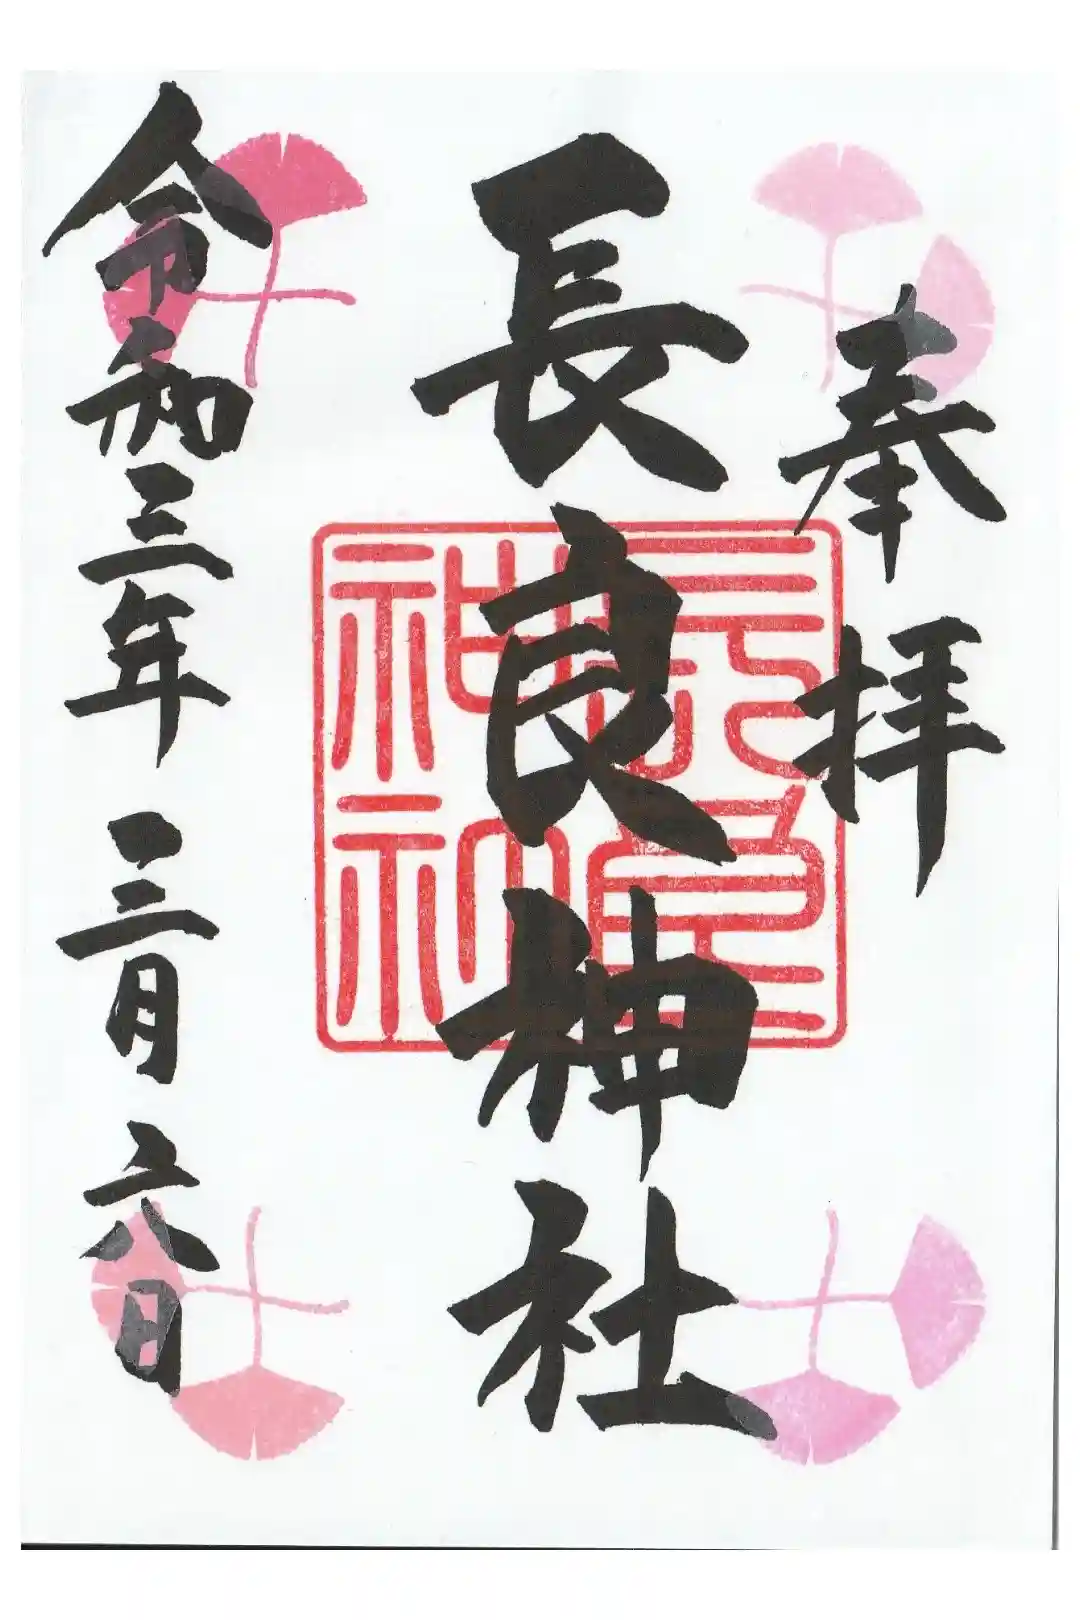 奉拝
長良神社
長良神社
令和三年三月六日